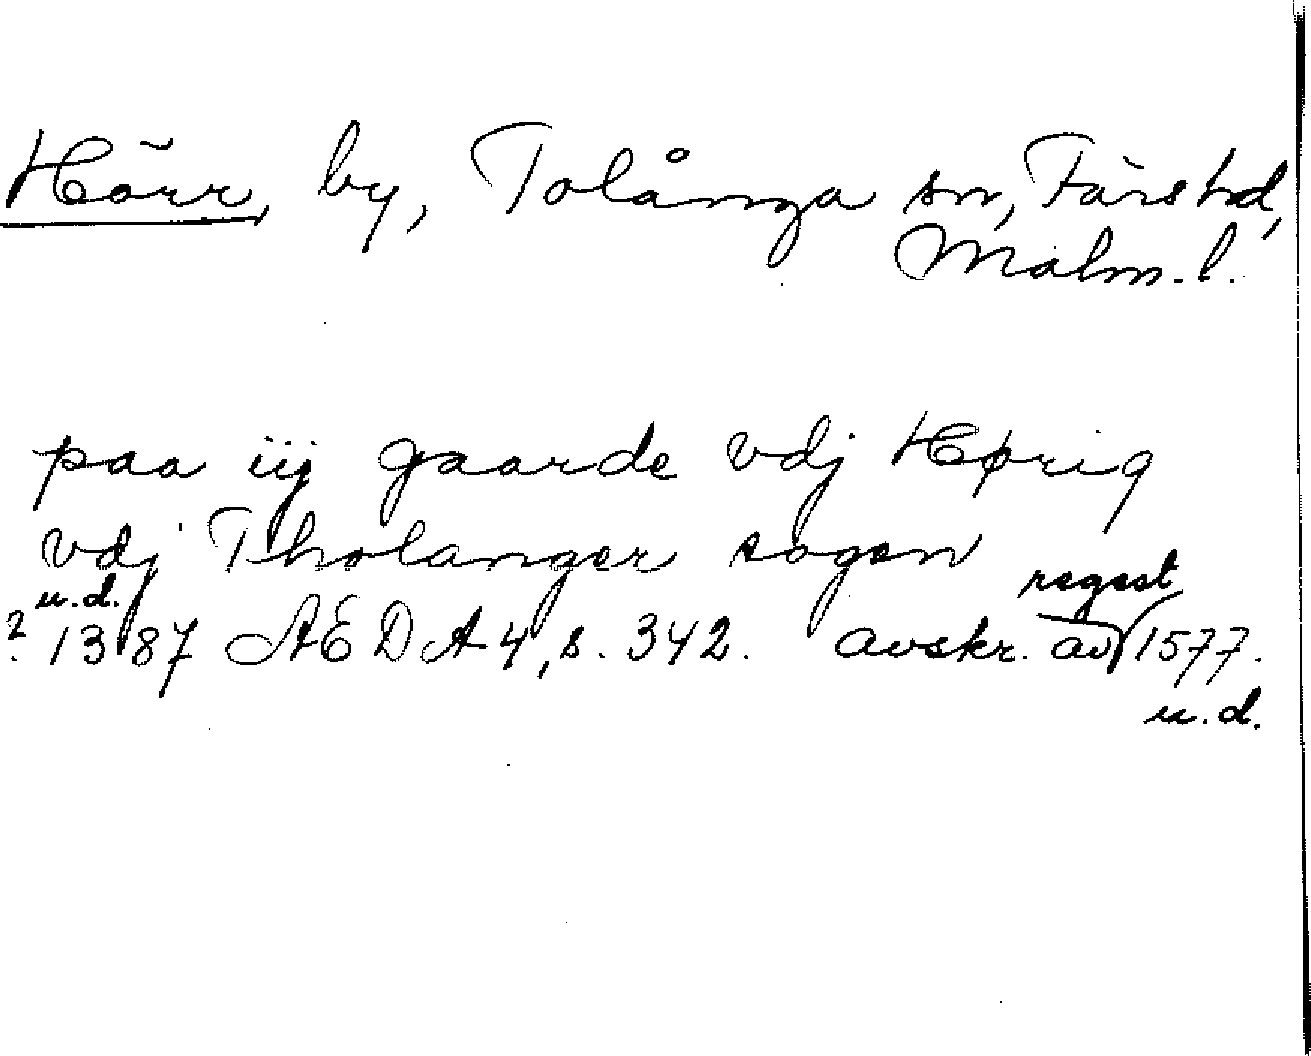 Hörr, by, Tolånga sn, Färs hd,
Malm. l.
paa iij gaarde vdj Hørig
vdj Tholanger sogen
u.d. regest
? 1387 AEDA 4, s. 342. avskr. av 1577.
u.d.